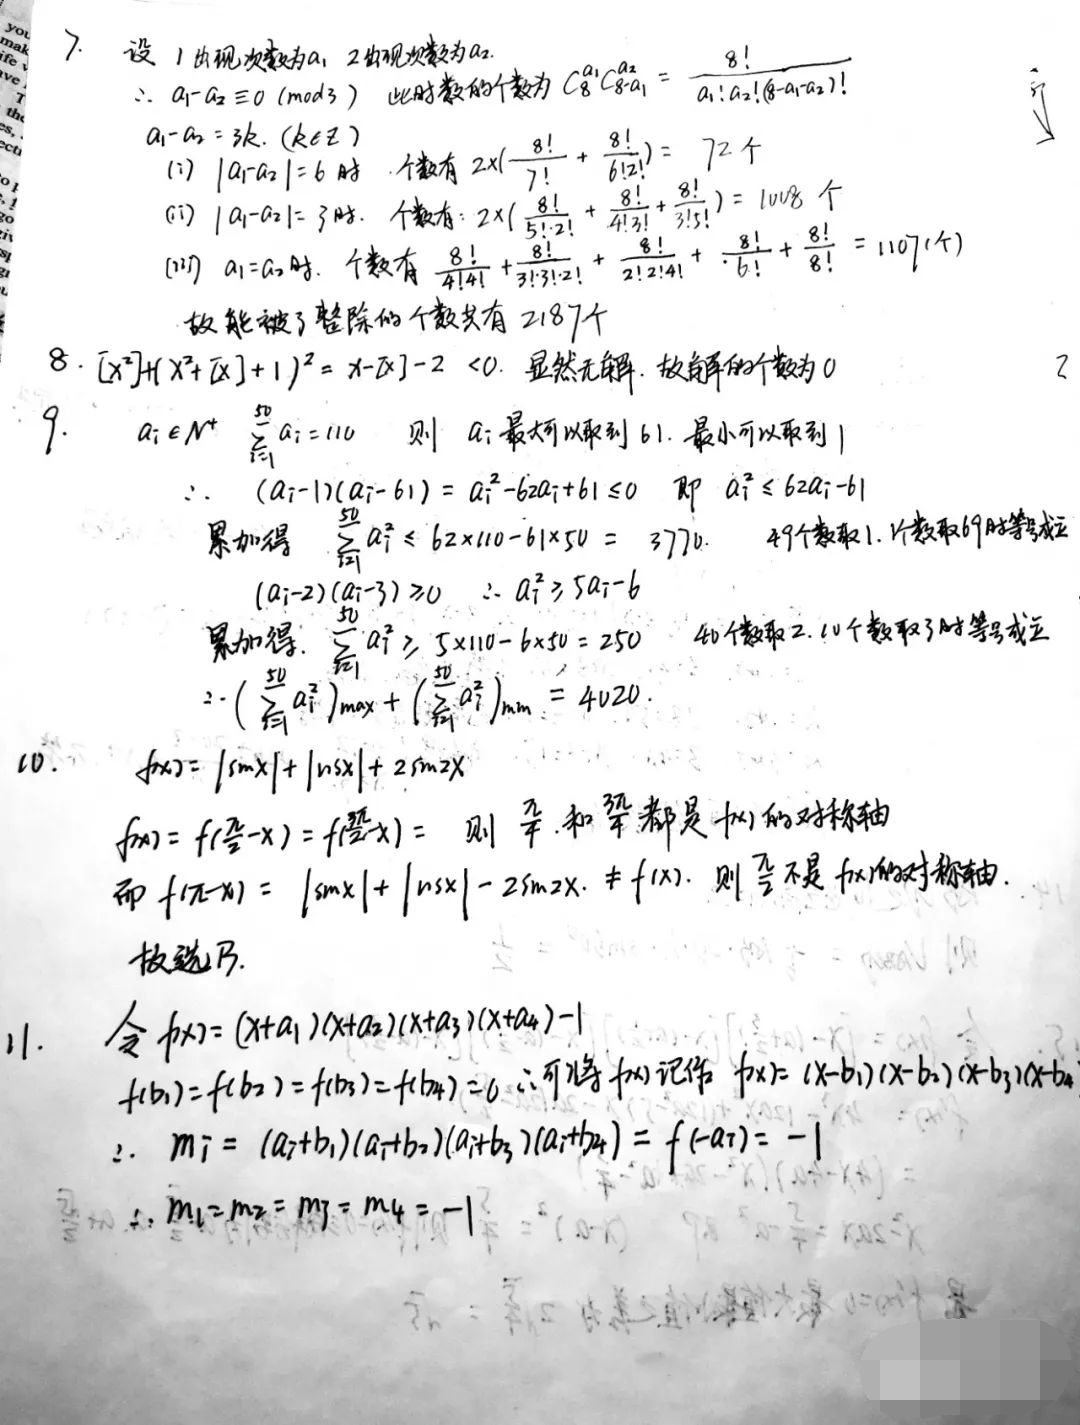 7. 设 1出现次数为a₁ 2出现次数为a₂.
∴ a₁-a₂≡0 (mod3) 此时数的个数为 C₈^{a₁}C_{8-a₁}^{a₂} = 8!/(a₁!a₂!(8-a₁-a₂)!)
a₁-a₂=3k. (k∈Z)
(i) |a₁-a₂|=6时 个数有 2×(8!/7! + 8!/(6!2!)) = 72个
(ii) |a₁-a₂|=3时. 个数有: 2×(8!/(5!·2!) + 8!/(4!3!) + 8!/(3!5!)) = 1008个
(iii) a₁=a₂时. 个数有 8!/(4!4!) + 8!/(3!·3!·2!) + 8!/(2!2!4!) + 8!/6! + 8!/8! = 1107(个)
故能被3整除的个数共有2187个
8. [x²]+(x²+[x]+1)² = x-[x]-2 <0. 显然无解. 故解的个数为0
9. aᵢ∈N⁺ ∑_{i=1}^{50} aᵢ=110 则 aᵢ最大可以取到61. 最小可以取到1
∴ (aᵢ-1)(aᵢ-61) = aᵢ²-62aᵢ+61≤0 即 aᵢ²≤62aᵢ-61
累加得 ∑_{i=1}^{50} aᵢ² ≤ 62×110-61×50 = 3770. 49个数取1. 1个数取69时等号成立
(aᵢ-2)(aᵢ-3)≥0 ∴ aᵢ²≥5aᵢ-6
累加得. ∑_{i=1}^{50} aᵢ² ≥ 5×110-6×50=250 40个数取2. 10个数取3时等号成立
∴ (∑_{i=1}^{50} aᵢ²)max + (∑_{i=1}^{50} aᵢ²)min = 4020.
10. f(x)=|sinx|+|cosx|+2sin2x
f(x)=f(π/2-x)=f(3π/2-x)= 则 π/4 和 3π/4 都是f(x)的对称轴
而 f(π-x)=|sinx|+|cosx|-2sin2x. ≠f(x). 则 π/2 不是f(x)的对称轴.
故选B.
11. 令f(x)=(x+a₁)(x+a₂)(x+a₃)(x+a₄)-1
f(b₁)=f(b₂)=f(b₃)=f(b₄)=0 ∴可将f(x)记作 f(x)=(x-b₁)(x-b₂)(x-b₃)(x-b₄)
∴ mᵢ=(aᵢ+b₁)(aᵢ+b₂)(aᵢ+b₃)(aᵢ+b₄)=f(-aᵢ)=-1
∴ m₁=m₂=m₃=m₄=-1